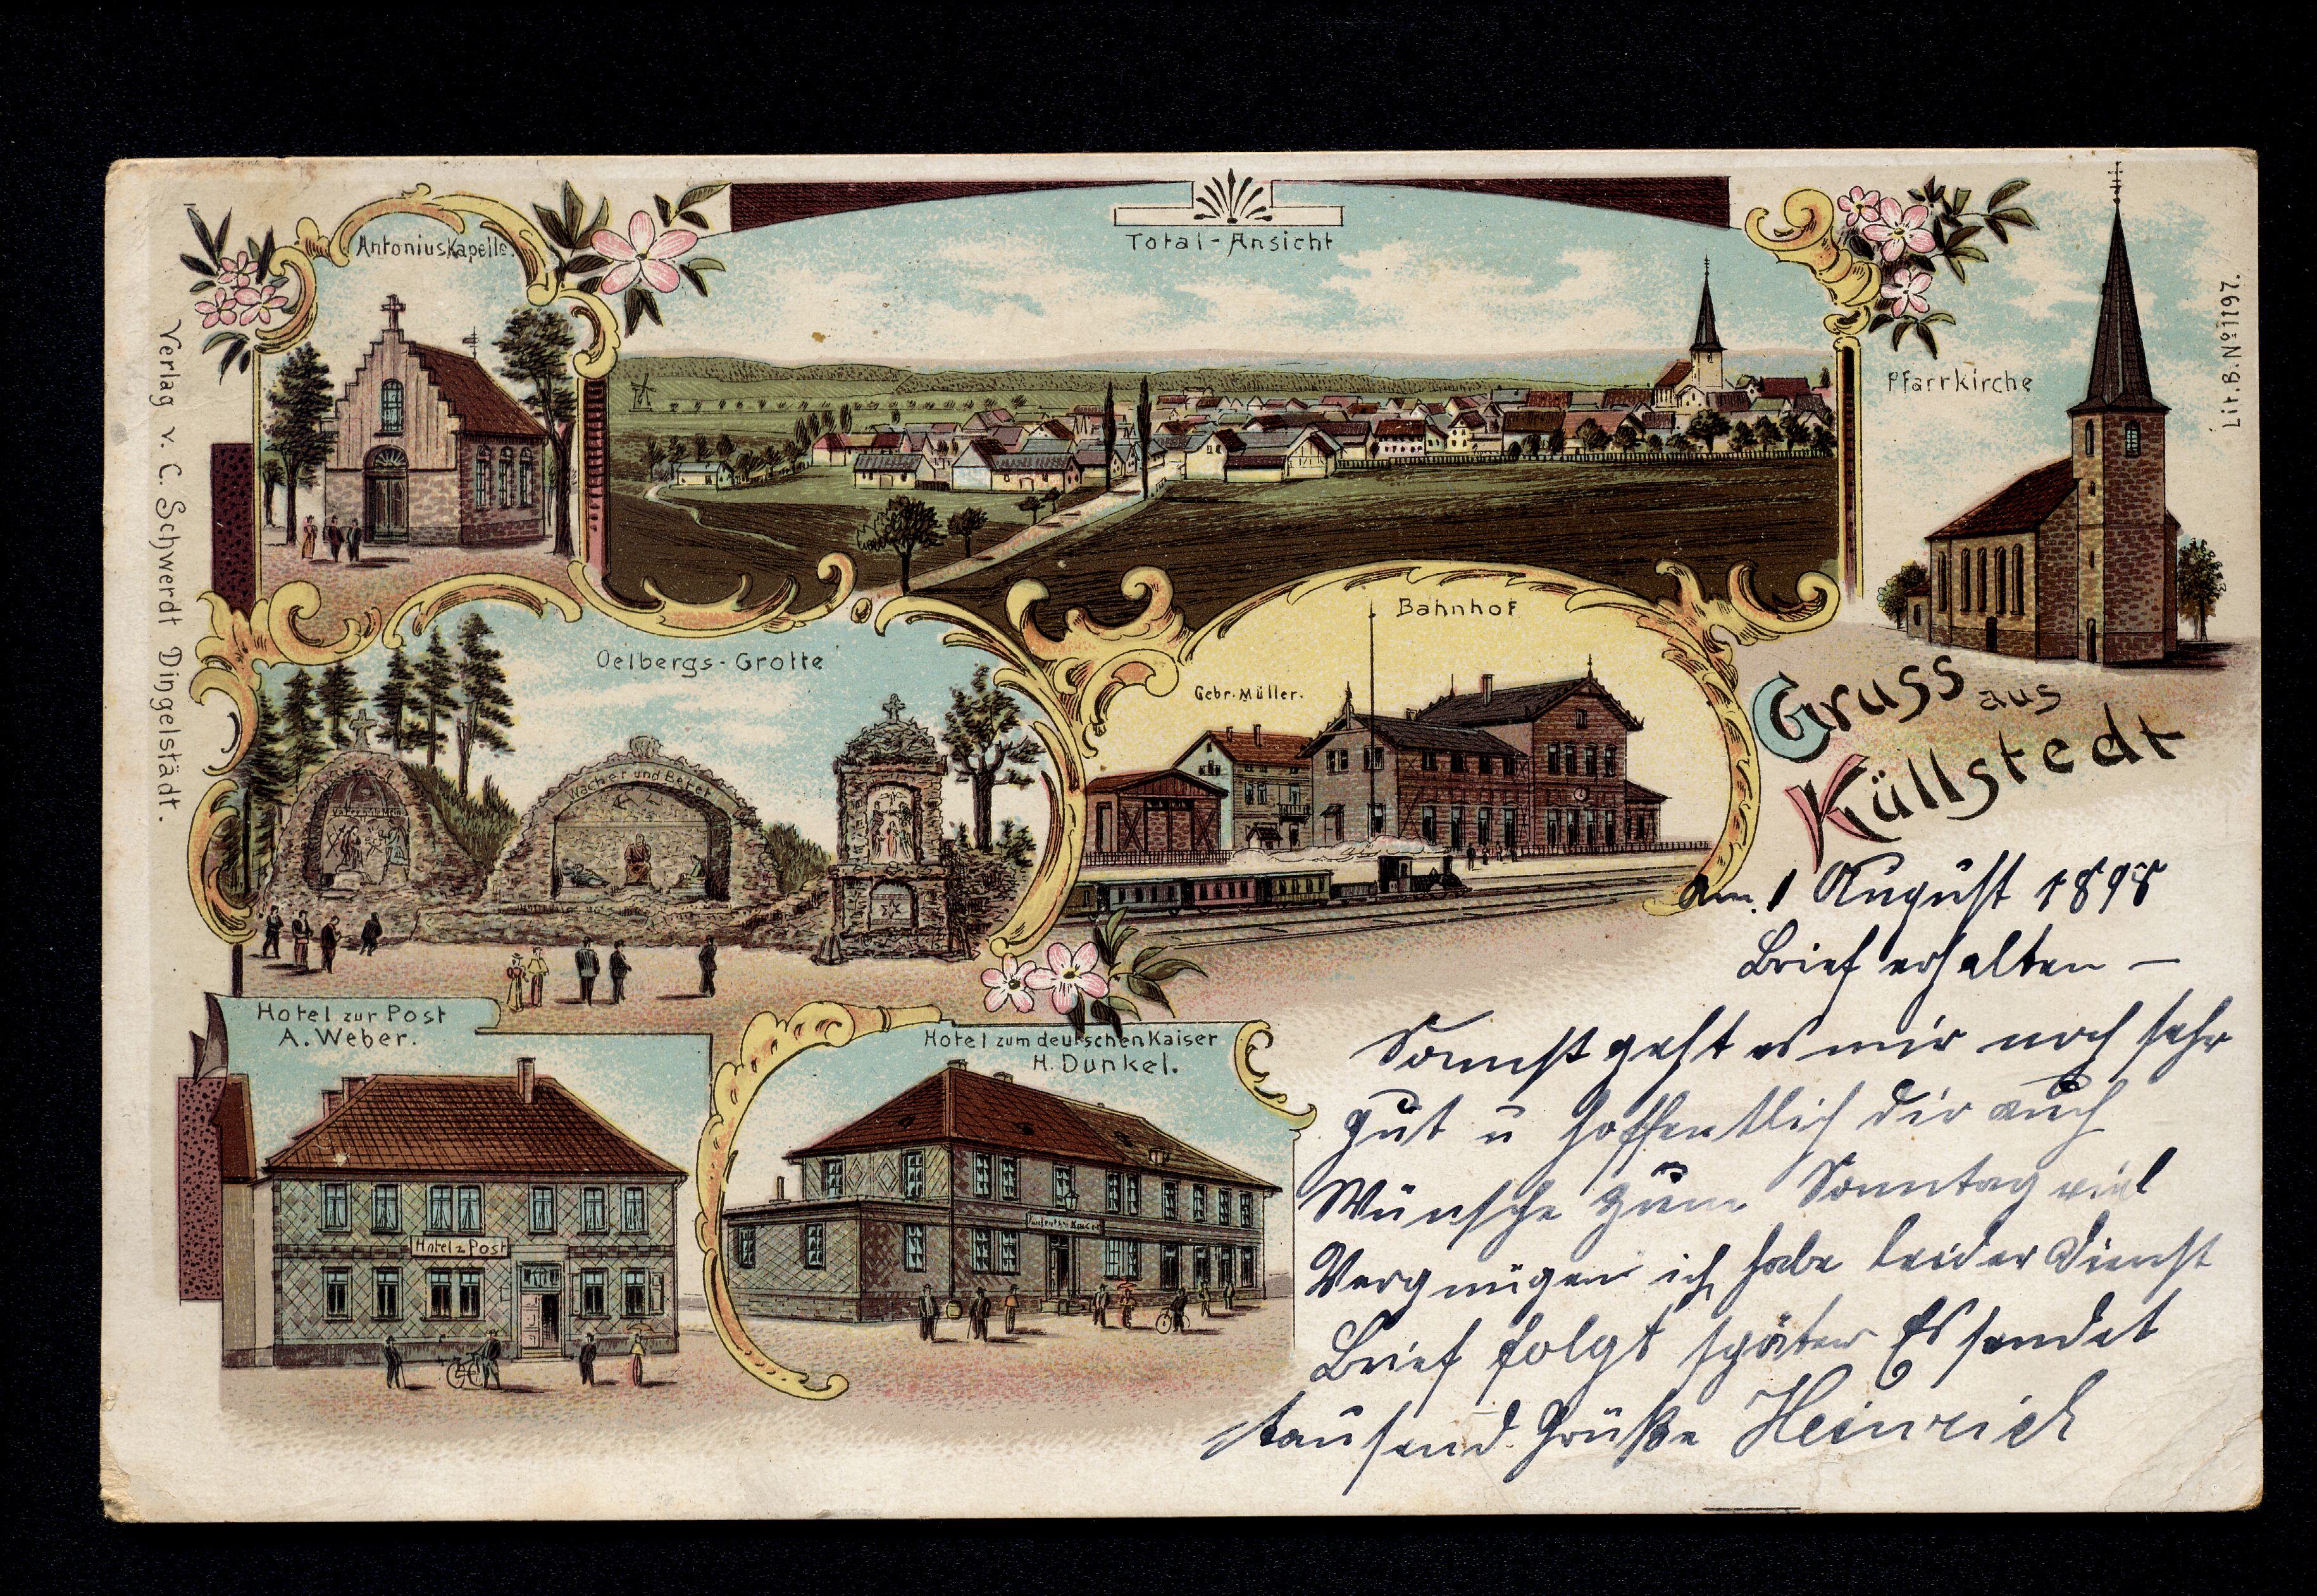 Antonius Kapelle.
Total-Ansicht
Pfarrkirche
Lit. B. No 1197.
Verlag v. C. Schwerdt Dingelstädt.
Oelbergs-Grotte
Wachet und Betet
Bahnhof
Gebr. Müller.
Gruss aus
Küllstedt
Hotel zur Post
A. Weber.
Hotel z Post
Hotel zum deutschen Kaiser
H. Dunkel.
Am 1 August 1898
Brief erhalten —
Sonnst geht es mir noch sehr
gut u hoffentlich dir auch
Wünsche zum Sonntag viel
Vergnügen ich habe leider Dienst
Brief folgt später Es sendet
tausend Grüße Heinrich